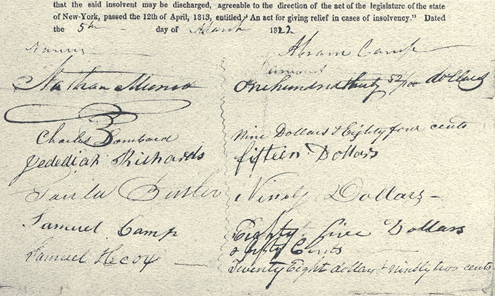 that the said insolvent may be discharged, agreeable to the direction of the act of the legislature of the state
of New-York, passed the 12th of April, 1813, entitled, "An act for giving relief in cases of insolvency." Dated
the 5th day of March 1822
Names Abram Camp
Demands
Nathan Munro One hundred thirty 52/100 dollars
Charles Lombard Nine Dollars & Eighty four cents
Jedediah Richards fifteen Dollars
Butler Ninety Dollars
Samuel Camp Eighty five Dollars
& fifty Cents
Samuel Hecox Twenty Eight dollars & Ninety two cents